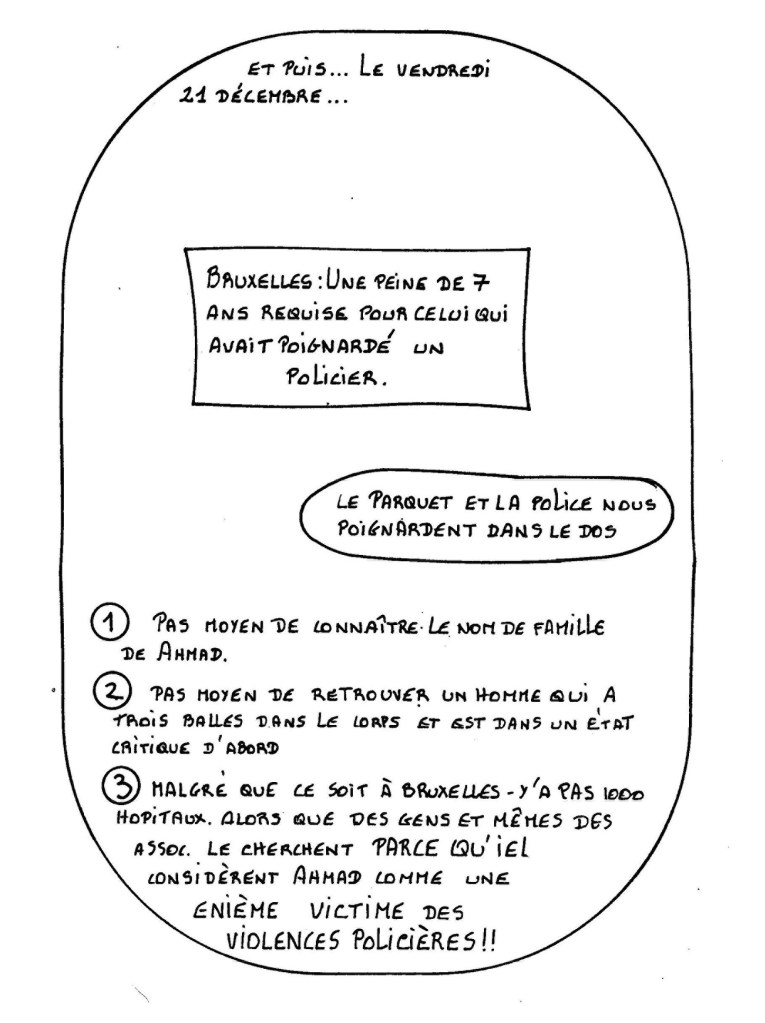 ET PUIS... LE VENDREDI
21 DÉCEMBRE...
BRUXELLES : UNE PEINE DE 7
ANS REQUISE POUR CELUI QUI
AVAIT POIGNARDÉ UN
POLICIER.
LE PARQUET ET LA POLICE NOUS
POIGNARDENT DANS LE DOS
1 PAS MOYEN DE CONNAÎTRE LE NOM DE FAMILLE
DE AHMAD.
2 PAS MOYEN DE RETROUVER UN HOMME QUI A
TROIS BALLES DANS LE CORPS ET EST DANS UN ÉTAT
CRITIQUE D'ABORD
3 MALGRÉ QUE CE SOIT À BRUXELLES - Y'A PAS 1000
HOPITAUX. ALORS QUE DES GENS ET MÊMES DES
ASSOC. LE CHERCHENT PARCE QU'IEL
CONSIDÈRENT AHMAD COMME UNE
ENIÈME VICTIME DES
VIOLENCES POLICIÈRES!!